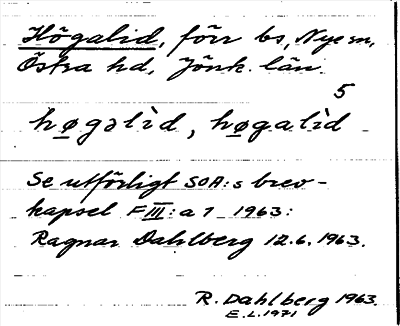 Högalid, förr bs, Nye sn,
Östra hd, Jönk. län.
5
høgəlìd, høgalìd
Se utförligt SOA:s brev-
kapsel F III:a 7 1963:
Ragnar Dahlberg 12.6.1963.
R. Dahlberg 1963.
E.L. 1971